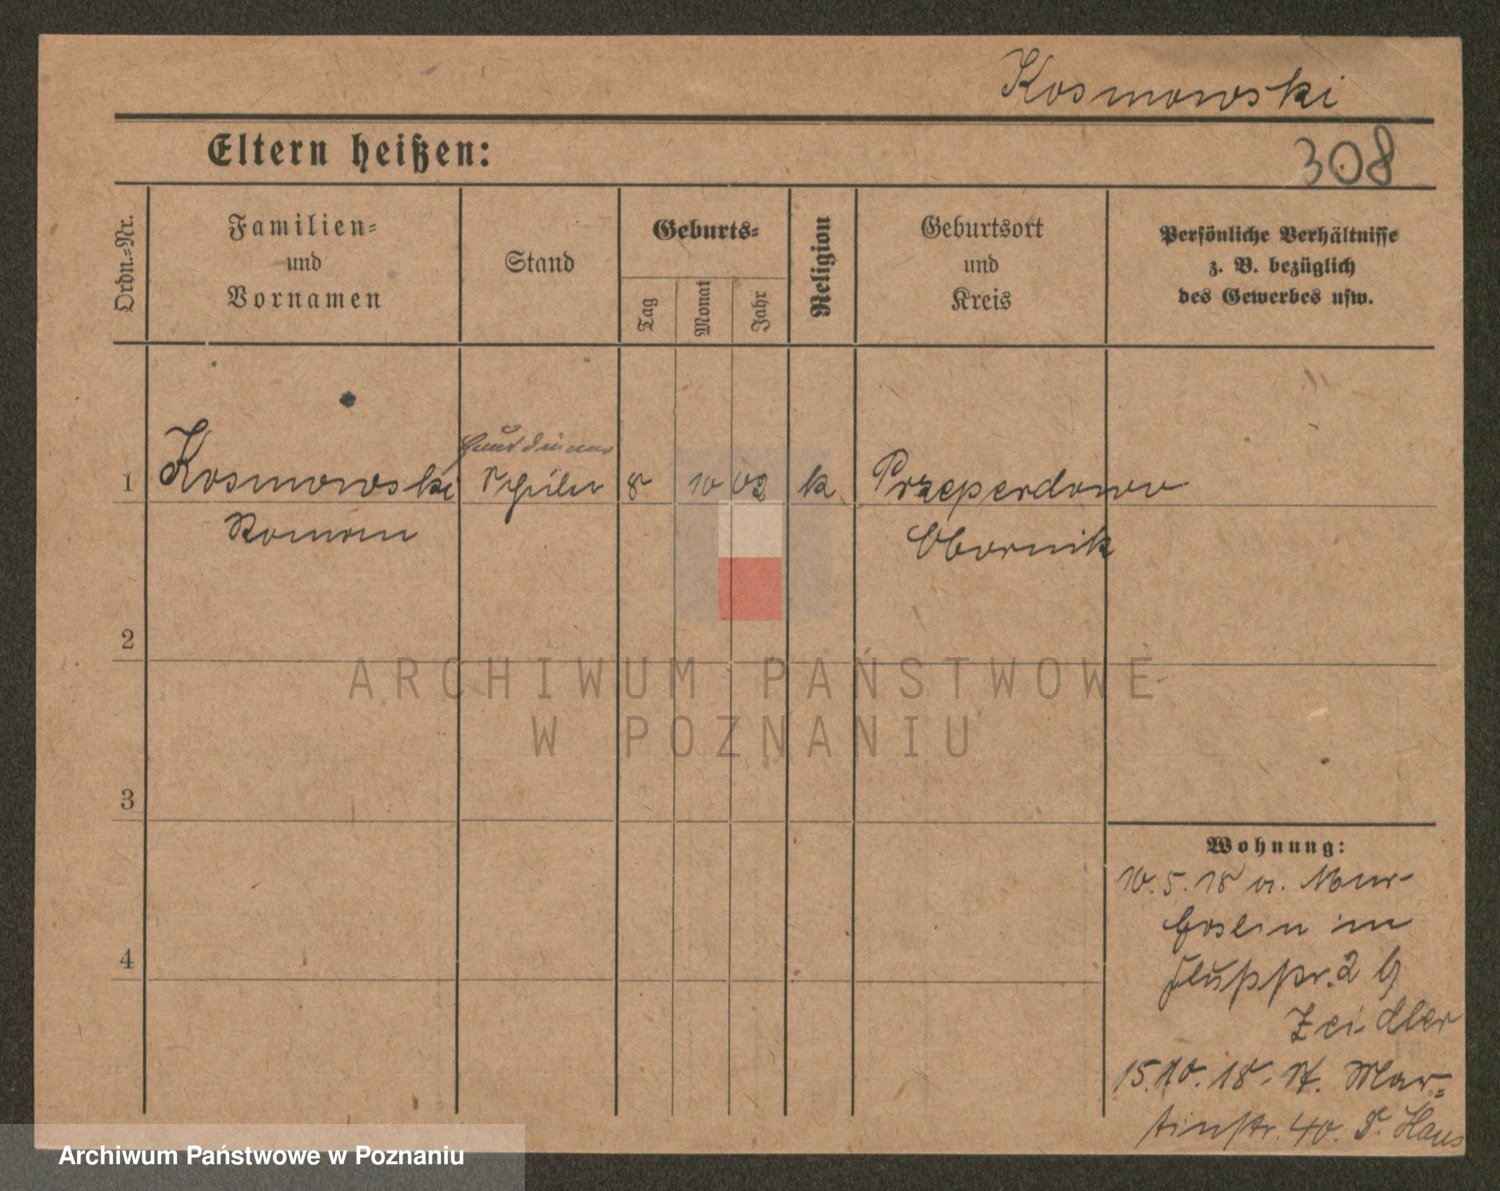 Kosmowski
308
Eltern heißen:
Ordn.-Nr.
Familien-
und
Vornamen
Stand
Geburts-
Tag
Monat
Jahr
Religion
Geburtsort
und
Kreis
Persönliche Verhältnisse
z. B. bezüglich
des Gewerbes usw.
1
Kosmowski
Roman
Schüler
8
10
02
k
Przependowo
Obornik
2
3
4
ARCHIWUM PAŃSTWOWE
W POZNANIU
Wohnung:
10.5.18 a. Mur-
Goslin in
2 b
Zeidler
15.10.18. n. Mar-
tinstr. 40. Haus
Archiwum Państwowe w Poznaniu